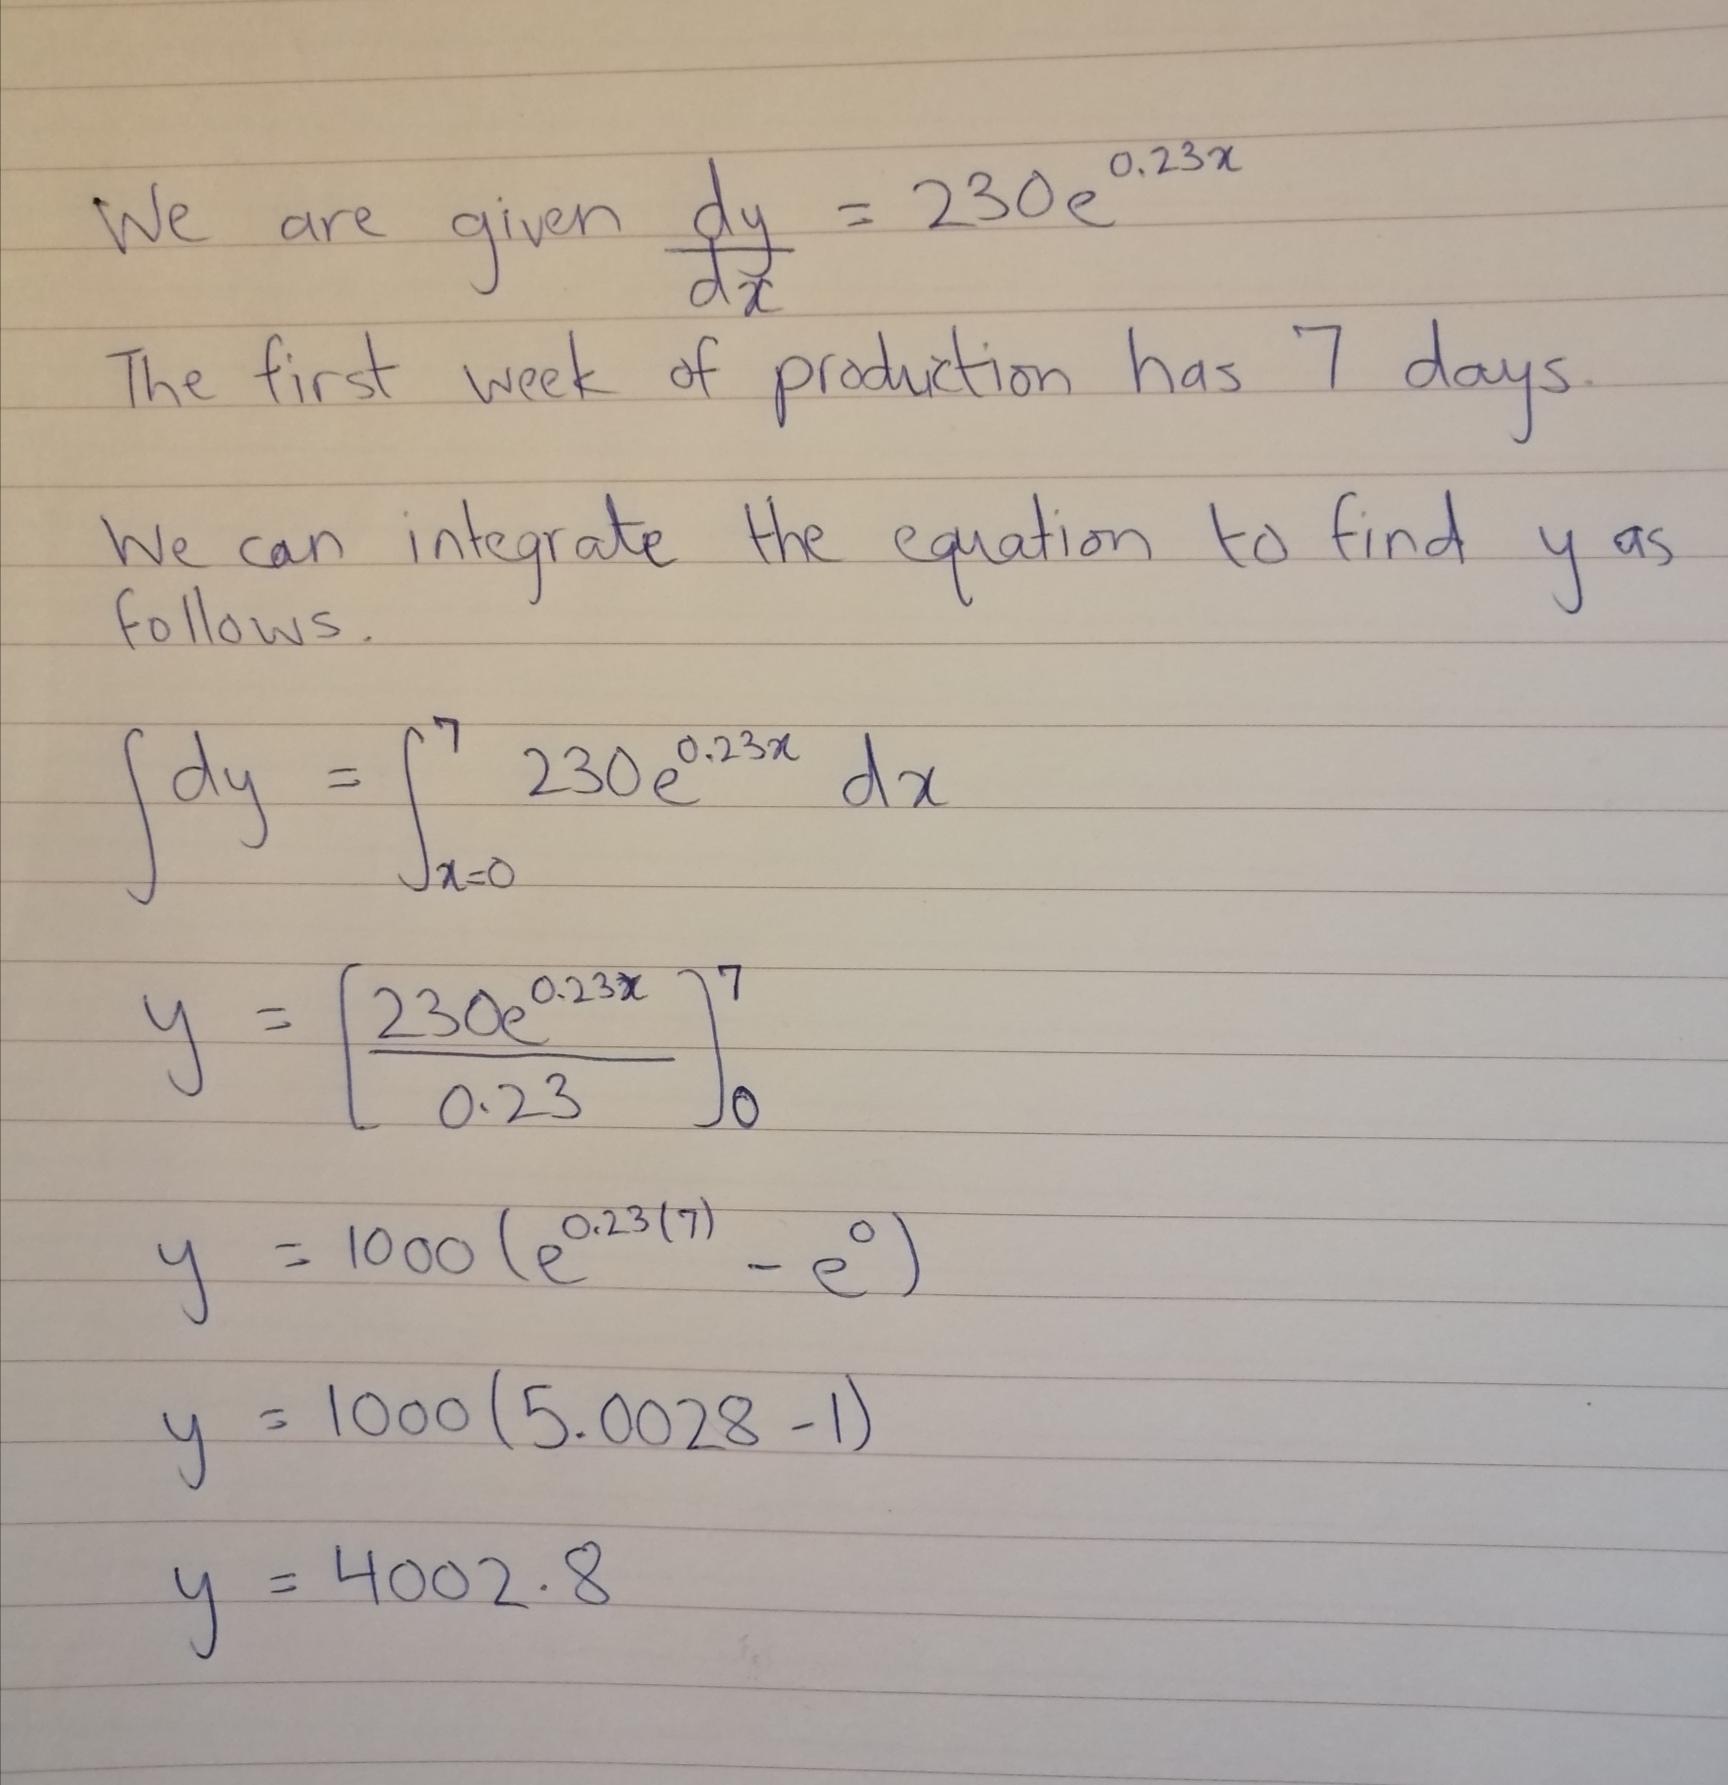 We are given dy/dx = 230e^0.23x
The first week of production has 7 days.
We can integrate the equation to find y as
follows.
∫dy = ∫_x=0^7 230e^0.23x dx
y = [230e^0.23x / 0.23]_0^7
y = 1000(e^0.23(7) - e^0)
y = 1000(5.0028 - 1)
y = 4002.8